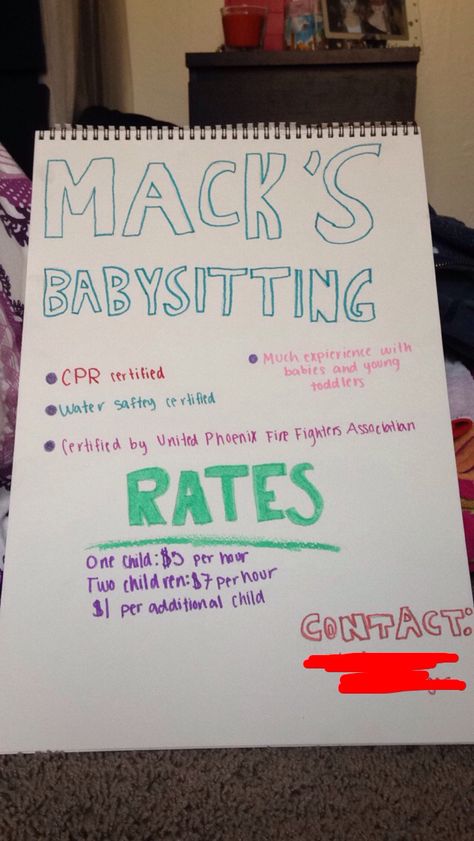 MACK'S
BABYSITTING
CPR certified
Much expierience with
babies and young
toddlers
Water saftey certified
Certified by United Phoenix Fire Fighters Association
RATES
One child: $5 per hour
Two children: $7 per hour
$1 per additional child
CONTACT: